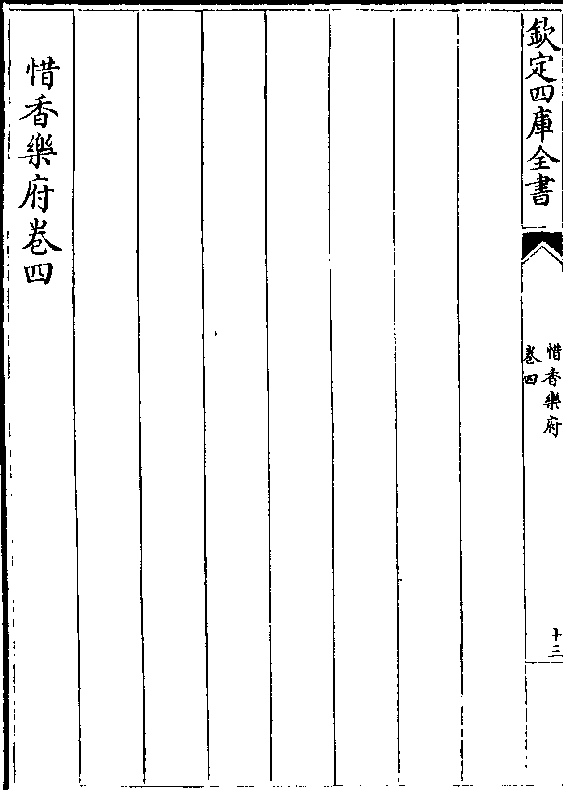 欽定四庫全書
惜香樂府
卷四
十三
惜香樂府卷四